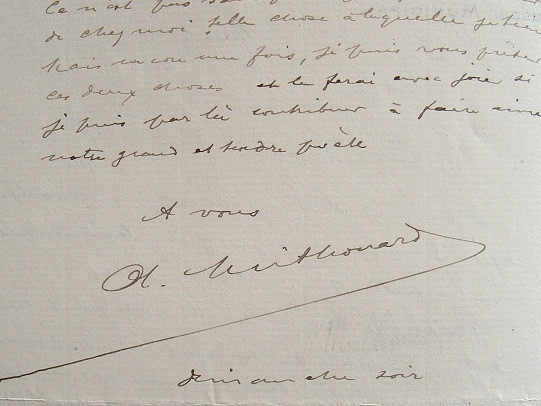 Ce n'est pas
de chez moi, telle chose à laquelle je tien
Mais encore une fois, je puis vous prêter
ces deux choses et le ferai avec joie si
je puis par là contribuer à faire aimer
notre grand et tendre poète
A vous
A. Mithouard
dimanche soir